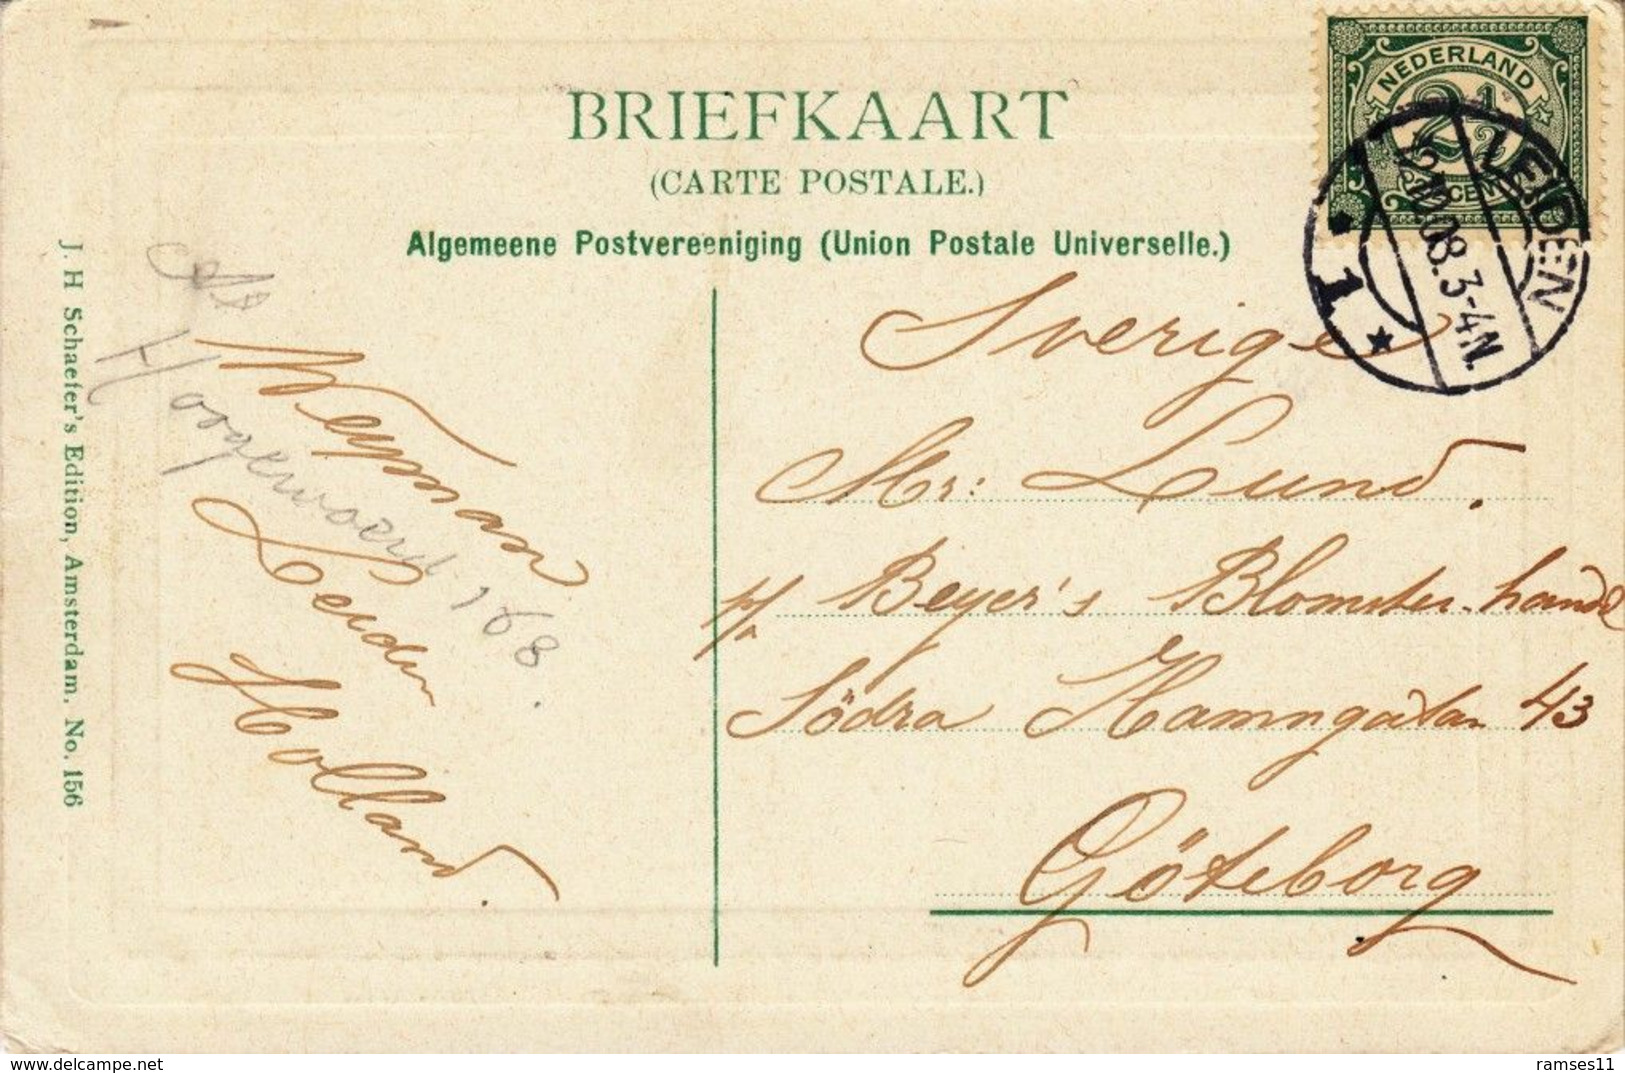 BRIEFKAART
(CARTE POSTALE.)
Algemeene Postvereeniging (Union Postale Universelle.)
NEDERLAND
2 1/2
CENT
LEIDEN
08. 3-4N.
1
J. H. Schaefer's Edition, Amsterdam. No. 156
Weyman
Hoogewoerd 168.
Leiden
Holland.
Sverige
Mr: Lund.
p/a Beyer's Blomster-handel
Södra Hamngatan 43
Göteborg
delcampe.net
ramses11